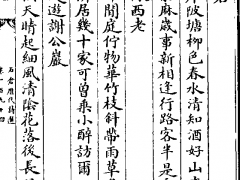 陂塘柳色春水清知酒好山
麻歲事新相逢行路客半是
西老
閒庭佇物華竹枝斜帶雨草
居幾十家可曾乗小醉訪爾
遊謝公巖
天晴起細風清陰花落後長
石倉歷代詩選